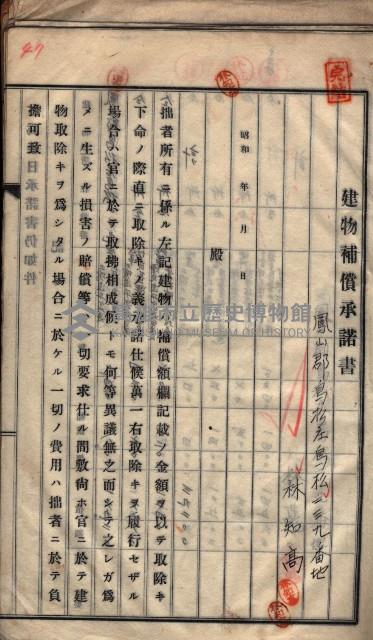 建物補償承諾書
鳳山郡鳥松庄鳥松二三九番地
林知高
昭和 年 月 日
殿
拙者所有ニ係ル左記建物ハ補償額欄記載ノ金額ヲ以テ取除キ
下命ノ際直ニ取除キノ義承諾仕候萬一右取除キヲ履行セザル
場合ハ官ニ於テ取拂相成候トモ何等異議無之而シテ之レガ爲
メニ生ズル損害ノ賠償等一切要求仕ル間敷尚ホ官ニ於テ建
物取除キヲ爲シタル場合ニ於ケル一切ノ費用ハ拙者ニ於テ負
擔可致日承諾書仍如件
47